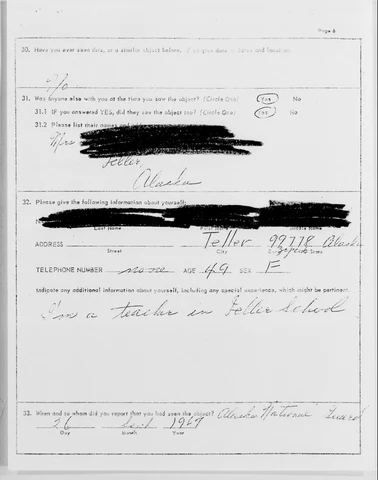 Page 6
30. Have you ever seen this, or a similar object before. If so give date or dates and location.
No
31. Was anyone else with you at the time you saw the object? (Circle One) Yes No
31.1 IF you answered YES, did they see the object too? (Circle One) Yes No
31.2 Please list their names and
Mrs
Teller,
Alaska
32. Please give the following information about yourself:
Last Name First Name Middle Name
ADDRESS Teller 99778 Alaska
Street City Zone State
TELEPHONE NUMBER none AGE 49 SEX F
Indicate any additional information about yourself, including any special experience, which might be pertinent.
I'm a teacher in Teller School
33. When and to whom did you report that you had seen the object? Alaska National Guard
26 Sept 1967
Day Month Year